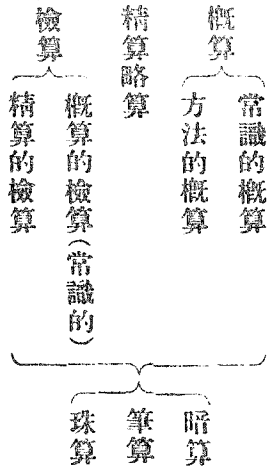 概算
常識的概算
方法的概算
精算略算
檢算
概算的檢算(常識的)
精算的檢算
暗算
筆算
珠算